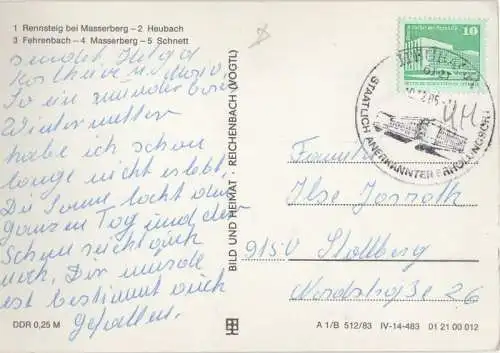 1 Rennsteig bei Masserberg – 2 Heubach
3 Fehrenbach – 4 Masserberg – 5 Schnett
sendet Helga
So ein wunderbares
Winterwetter
habe ich schon
lange nicht erlebt.
Die Sonne lacht den
ganzen Tag und der
Schnee reicht auch
noch. Dir würde
es bestimmt auch
gefallen.
DDR 0,25 M
BILD UND HEIMAT REICHENBACH (VOGTL)
10
STAATLICH ANERKANNTER ERHOLUNGSORT
Ilse
9150 Stollberg
Nordstraße 26
A 1/B 512/83 IV-14-483 01 21 00 012